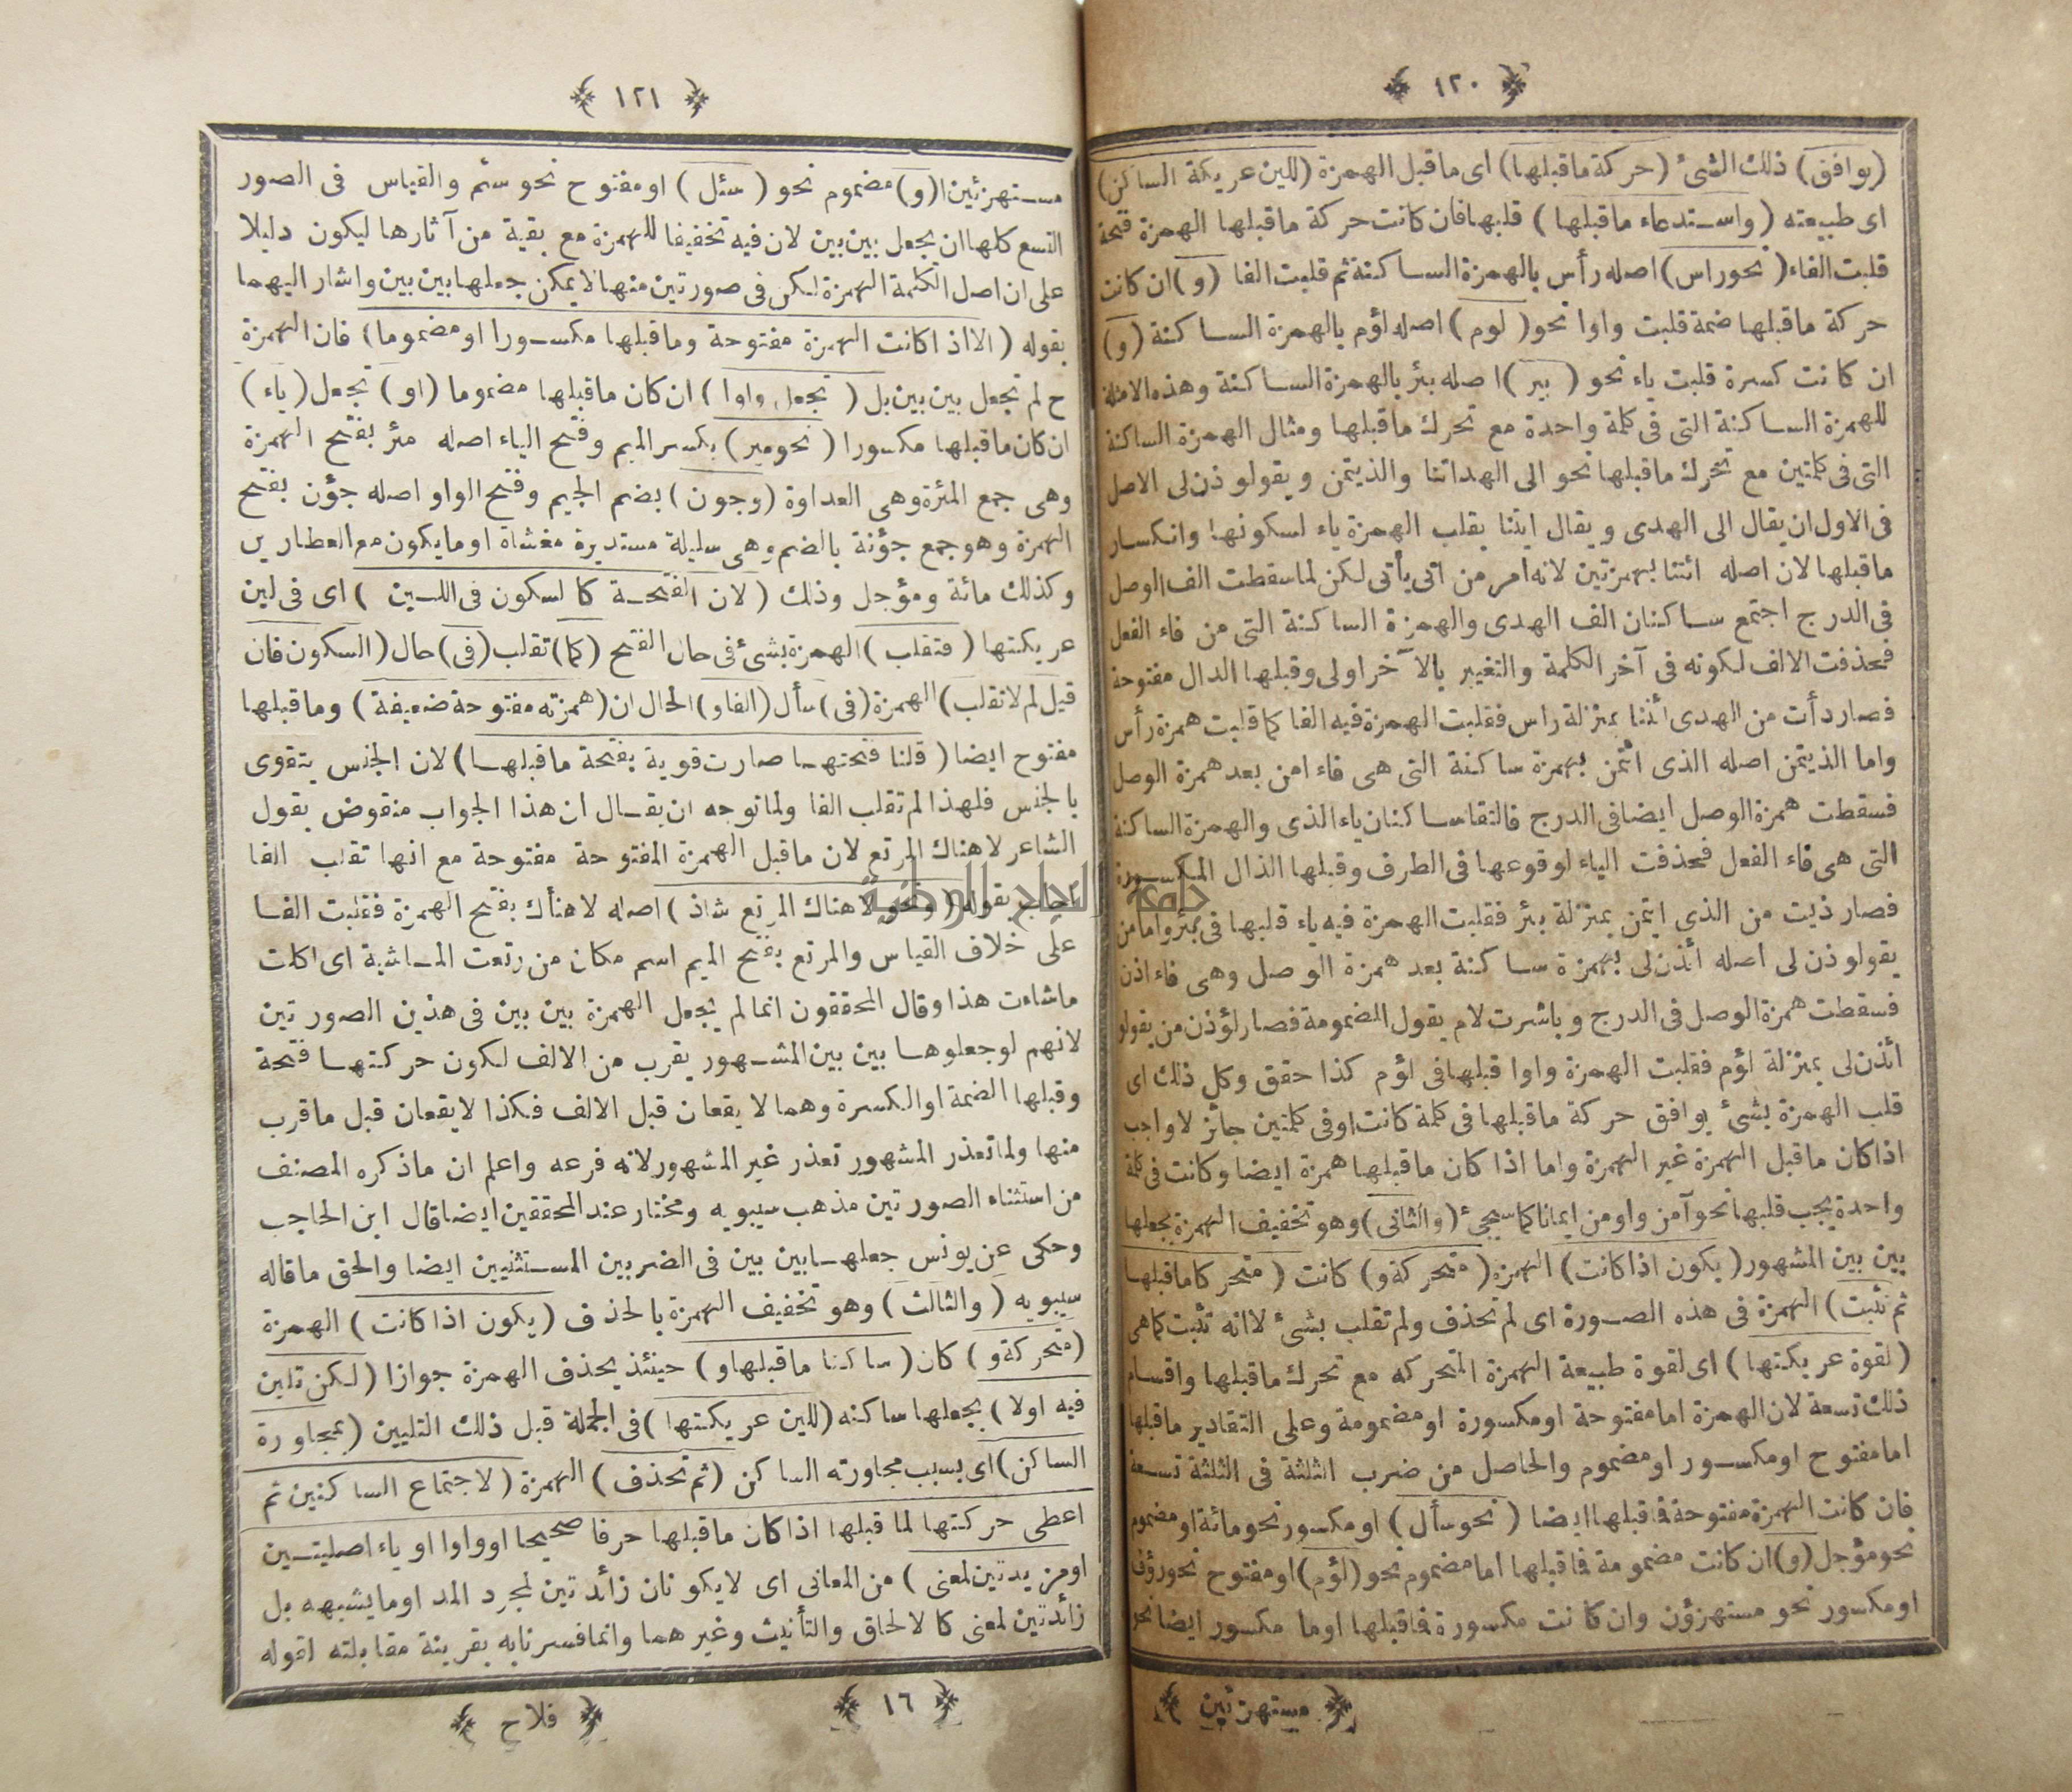 ١٢٠
(يوافق) ذلك الشئ (حركة ماقبلها) اى ماقبل الهمزة (للين عريكة الساكن)
اى طبيعته (واستدعاء ماقبلها) قلبها فان كانت حركة ماقبلها الهمزة فتحة
قلبت الفاء (نحو راس) اصله رأس بالهمزة الساكنة ثم قلبت الفا (و) ان كانت
حركة ماقبلها ضمة قلبت واوا نحو (لوم) اصله لؤم بالهمزة الساكنة (و)
ان كانت كسرة قلبت ياء نحو (بير) اصله بئر بالهمزة الساكنة وهذه الامثلة
للهمزة الساكنة التى فى كلمة واحدة مع تحرك ماقبلها ومثال الهمزة الساكنة
التى فى كلمتين مع تحرك ماقبلها نحو الى الهداتنا والذيتمن ويقولوذن لى الاصل
فى الاول ان يقال الى الهدى ويقال ايتنا يقلب الهمزة ياء لسكونها وانكسار
ماقبلها لان اصله ائتنا بهمزتين لانه امر من اتى يأتى لكن لما سقطت الف الوصل
فى الدرج اجتمع ساكنان الف الهدى والهمزة الساكنة التى من فاء الفعل
فحذفت الالف لكونه فى آخر الكلمة والتغيير بالآخر اولى وقبلها الدال مفتوحة
فصار دأت من الهدى ائتنا بمنزلة راس فقلبت الهمزة فيه الفا كما قلبت همزة رأس
واما الذيتمن اصله الذى ائتمن بهمزة ساكنة التى هى فاء امن بعد همزة الوصل
فسقطت همزة الوصل ايضا فى الدرج فالتقا ساكنان ياء الذى والهمزة الساكنة
التى هى فاء الفعل فحذفت الياء لوقوعها فى الطرف وقبلها الذال المكسورة
فصار ذيت من الذى ايتمن بمنزلة بئر فقلبت الهمزة فيه ياء قلبها فى بئر واما من
يقولوذن لى اصله أئذن لى بهمزة ساكنة بعد همزة الوصل وهى فاء اذن
فسقطت همزة الوصل فى الدرج وباشرت لام يقول المضمومة فصار لؤذن من يقولو
ائذن لى بمنزلة لؤم فقلبت الهمزة واوا قبلها فى لؤم كذا حقق وكل ذلك اى
قلب الهمزة بشئ يوافق حركة ماقبلها فى كلمة كانت او فى كلمتين جائز لاواجب
اذا كان ماقبل الهمزة غير الهمزة واما اذا كان ماقبلها همزة ايضا وكانت فى كلمة
واحدة يجب قلبها نحو آمن واومن ايمانا كما سيجئ (والثانى) وهو تخفيف الهمزة بجعلها
بين بين المشهور (يكون اذا كانت) الهمزة (متحركة و) كانت (متحركا ماقبلها
ثم تثبت) الهمزة فى هذه الصورة اى لم تحذف ولم تقلب بشئ لا انه تثبت كما هى
(لقوة عريكتها) اى لقوة طبيعة الهمزة المتحركه مع تحرك ماقبلها واقسام
ذلك تسعة لان الهمزة اما مفتوحة او مكسورة او مضمومة وعلى التقادير ماقبلها
اما مفتوح او مكسور او مضموم والحاصل من ضرب الثلثة فى الثلثة تسعة
فان كانت الهمزة مفتوحة فماقبلها ايضا (نحو سأل) او مكسور نحو مائة او مضموم
نحو مؤجل (و) ان كانت مضمومة فماقبلها اما مضموم نحو (لؤم) او مفتوح نحو رؤف
او مكسور نحو مستهزؤن وان كانت مكسورة فماقبلها اوما مكسور ايضا نحو
مستهزئين
١٢١
مستهزئين ا (و) مضموم نحو (سئل) او مفتوح نحو سئم والقياس فى الصور
التسع كلها ان يجعل بين بين لان فيه تخفيفا للهمزة مع بقية من آثارها ليكون دليلا
على ان اصل الكلمة الهمزة لكن فى صورتين منها لا يمكن جعلها بين بين واشار اليهما
بقوله (الا اذا كانت الهمزة مفتوحة وماقبلها مكسورا او مضموما) فان الهمزة
ح لم تجعل بين بين بل (تجعل واوا) ان كان ماقبلها مضموما (او) تجعل (ياء)
ان كان ماقبلها مكسورا (نحو مير) بكسر الميم وفتح الياء اصله مئر بفتح الهمزة
وهى جمع المئرة وهى العداوة (وجون) بضم الجيم وفتح الواو اصله جؤن بفتح
الهمزة وهو جمع جؤنة بالضم وهى سليلة مستديرة مغشاة اوما يكون مع العطارين
وكذلك مائة ومؤجل وذلك (لان الفتحة كالسكون فى اللين) اى فى لين
عريكتها (فتقلب) الهمزة بشئ فى حال الفتح (كما) تقلب (فى) حال (السكون فان
قيل لم لا تقلب) الهمزة (فى) سأل (الفا و) الحال ان (همزته مفتوحة ضعيفة) وماقبلها
مفتوح ايضا (قلنا فتحتها صارت قوية بفتحة ماقبلها) لان الجنس يتقوى
بالجنس فلهذا لم تقلب الفا ولما توجه ان يقال ان هذا الجواب منقوض بقول
الشاعر لاهناك المرتع لان ماقبل الهمزة المفتوحة مفتوحة مع انها تقلب الفا
اجاب بقوله (ونحو لاهناك المرتع شاذ) اصله لاهنأك بفتح الهمزة فقلبت الفا
على خلاف القياس والمرتع بفتح الميم اسم مكان من رتعت الماشية اى اكلت
ماشاءت هذا وقال المحققون انما لم يجعل الهمزة بين بين فى هذين الصورتين
لانهم لو جعلوها بين بين المشهور يقرب من الالف لكون حركتها فتحة
وقبلها الضمة او الكسرة وهما لا يقعان قبل الالف فكذا لا يقعان قبل ماقرب
منها ولما تعذر المشهور تعذر غير المشهور لانه فرعه واعلم ان ماذكره المصنف
من استثناء الصورتين مذهب سيبويه ومختار عند المحققين ايضا قال ابن الحاجب
وحكى عن يونس جعلها بين بين فى الضربين المستثنيين ايضا والحق ماقاله
سيبويه (والثالث) وهو تخفيف الهمزة بالحذف (يكون اذا كانت) الهمزة
(متحركة و) كان (ساكنا ماقبلها و) حينئذ يحذف الهمزة جوازا (لكن تلين
فيه اولا) بجعلها ساكنه (للين عريكتها) فى الجملة قبل ذلك التليين (بمجاورة
الساكن) اى بسبب مجاورته الساكن (ثم تحذف) الهمزة (لاجتماع الساكنين ثم
اعطى حركتها لما قبلها اذا كان ماقبلها حرفا صحيحا او واوا او ياء اصليتين
او مزيدتين لمعنى) من المعانى اى لا يكونان زائدتين لمجرد المد اوما يشبهه بل
زائدتين لمعنى كالالحاق والتأنيث وغيرهما وانما فسرنا به بقرينة مقابلته لقوله
١٦
فلاح
جامعة النجاح الوطنية